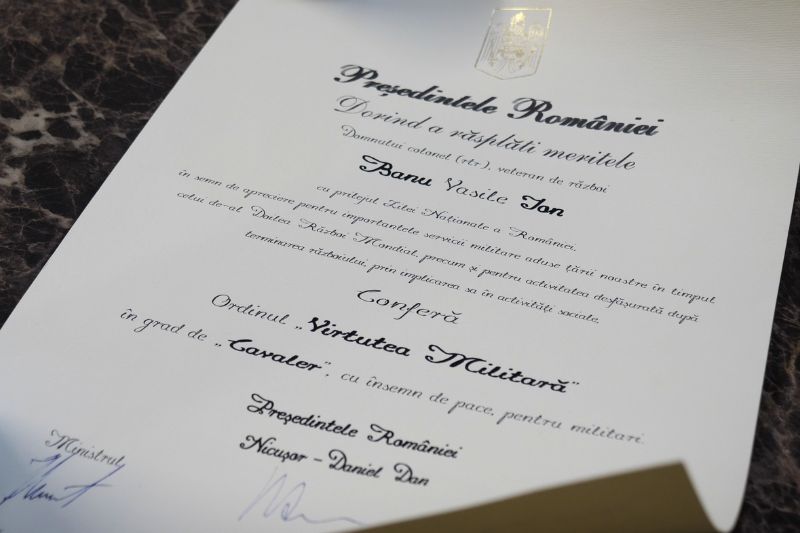 Președintele României
Dorind a răsplăti meritele
Domnului colonel (rtr.), veteran de război
Banu Vasile Ion
cu prilejul Zilei Naționale a României,
în semn de apreciere pentru importantele servicii militare aduse țării noastre în timpul
celui de-al Doilea Război Mondial, precum și pentru activitatea desfășurată după
terminarea războiului, prin implicarea sa în activități sociale,
Conferă
Ordinul „Virtutea Militară”
în grad de „Cavaler”, cu însemn de pace, pentru militari.
Președintele României
Nicușor - Daniel Dan
Ministrul